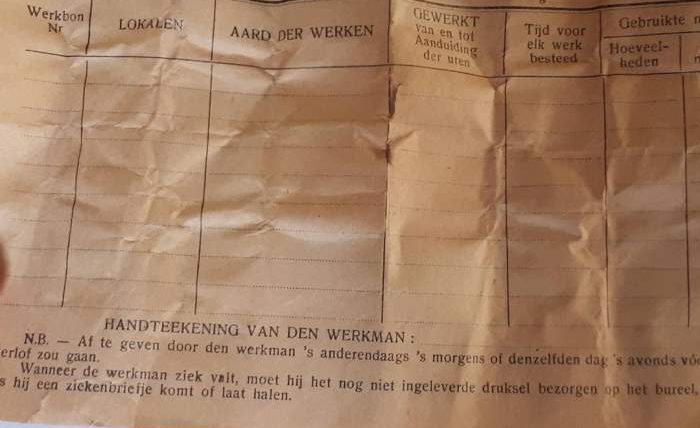 Werkbon
Nr
LOKALEN
AARD DER WERKEN
GEWERKT
van en tot
Aanduiding
der uren
Tijd voor
elk werk
besteed
Gebruikte
Hoeveel-
heden
HANDTEEKENING VAN DEN WERKMAN :
N.B. — Af te geven door den werkman 's anderendaags 's morgens of denzelfden dag 's avonds vóó
erlof zou gaan.
Wanneer de werkman ziek valt, moet hij het nog niet ingeleverde druksel bezorgen op het bureel,
s hij een ziekenbriefje komt of laat halen.